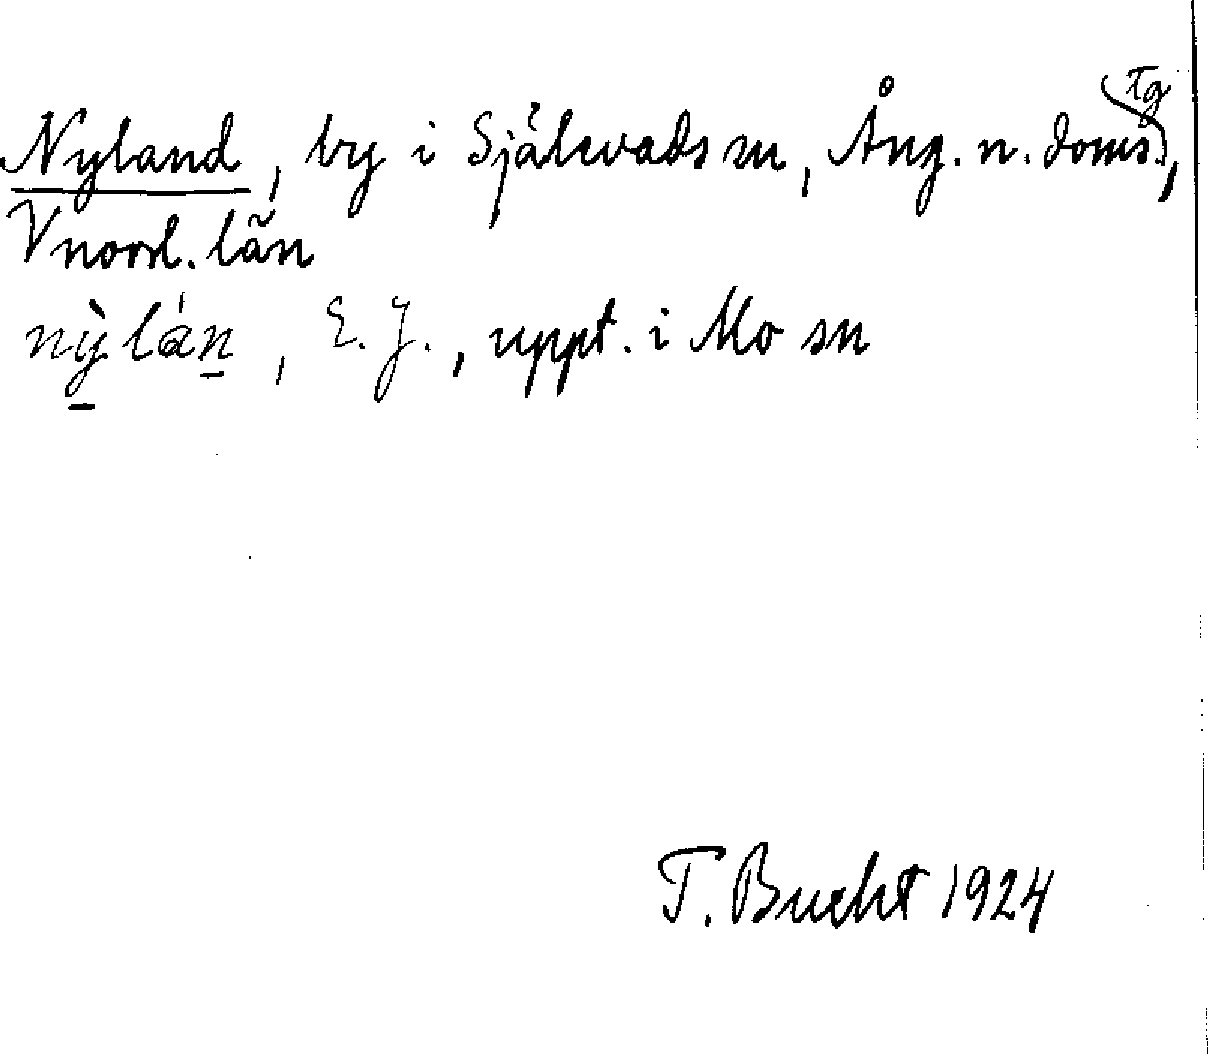 Nyland, by i Själevads sn, Ång. n. doms.tg,
Vnorrl. län
nỳ̱lán̲, E. J., uppt. i Mo sn
T. Bucht 1924